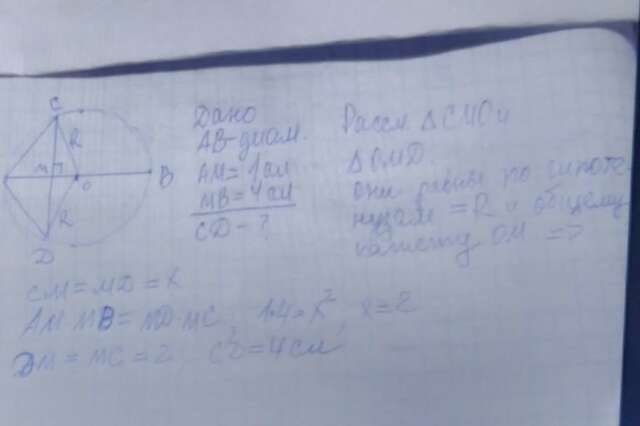 C
R
M
O
B
R
D
Дано
AB-диам.
AM=1см
MB=4см
CD-?
Рассм. △CMO и
△OMD.
они равны по гипоте-
нузам =R и общему
катету OM =>
CM=MD=x
AM MB=MD·MC, 1·4=x², x=2
DM=MC=2, CD=4см